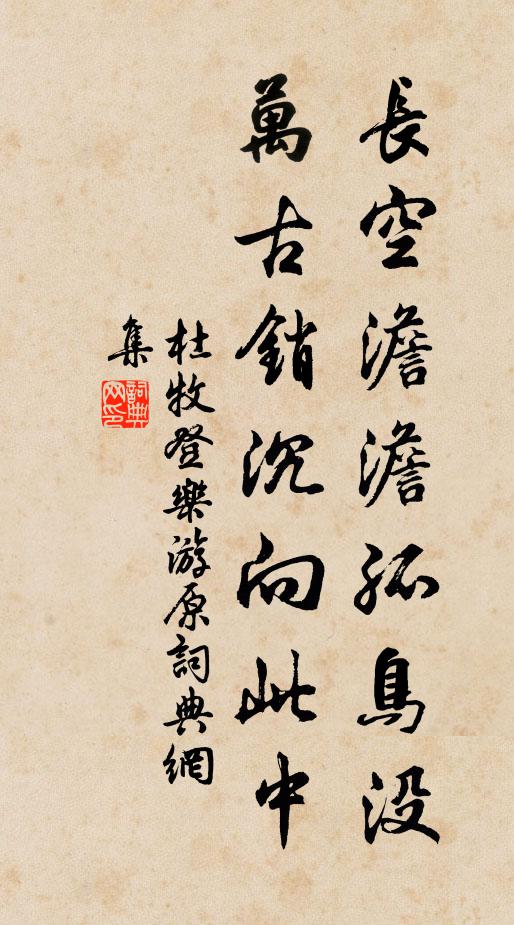 長空澹澹孤鳥没
萬古銷沉向此中
杜牧登樂游原詞典網
集
詞典網印